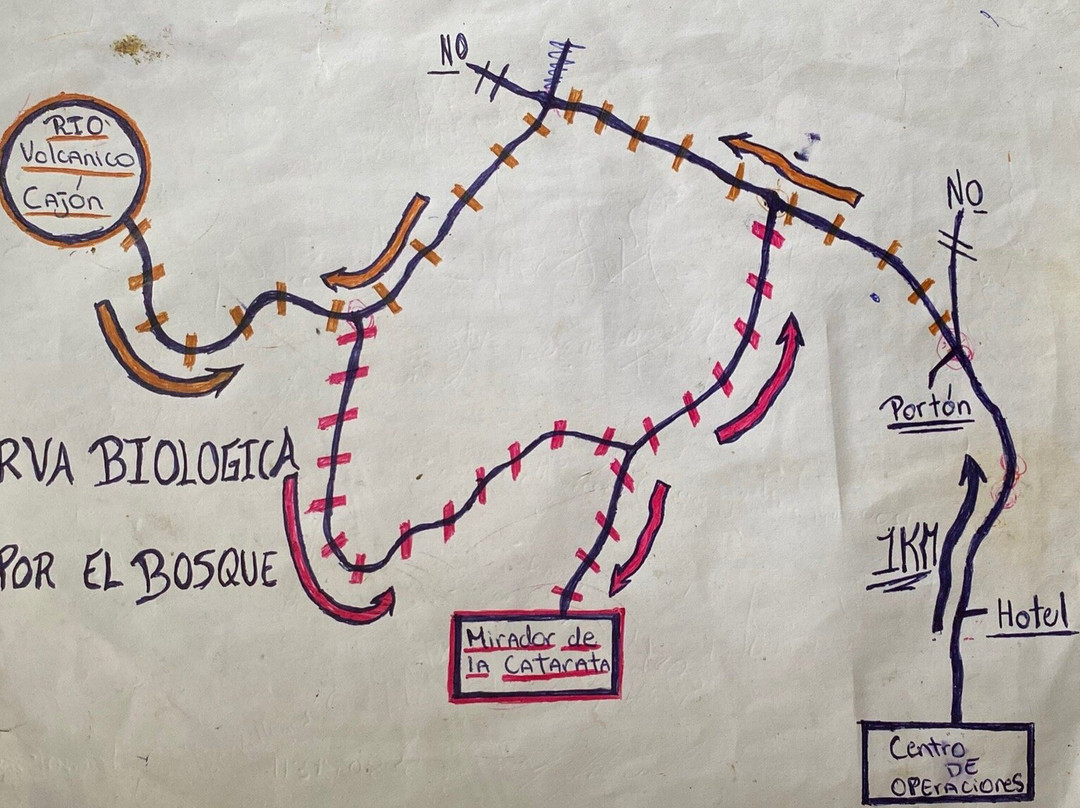 NO
RIO
Volcanico
Cajón
NO
Portón
RVA BIOLOGICA
1KM
POR EL BOSQUE
Hotel
Mirador de
la CATARATA
Centro
DE
OPEraciones